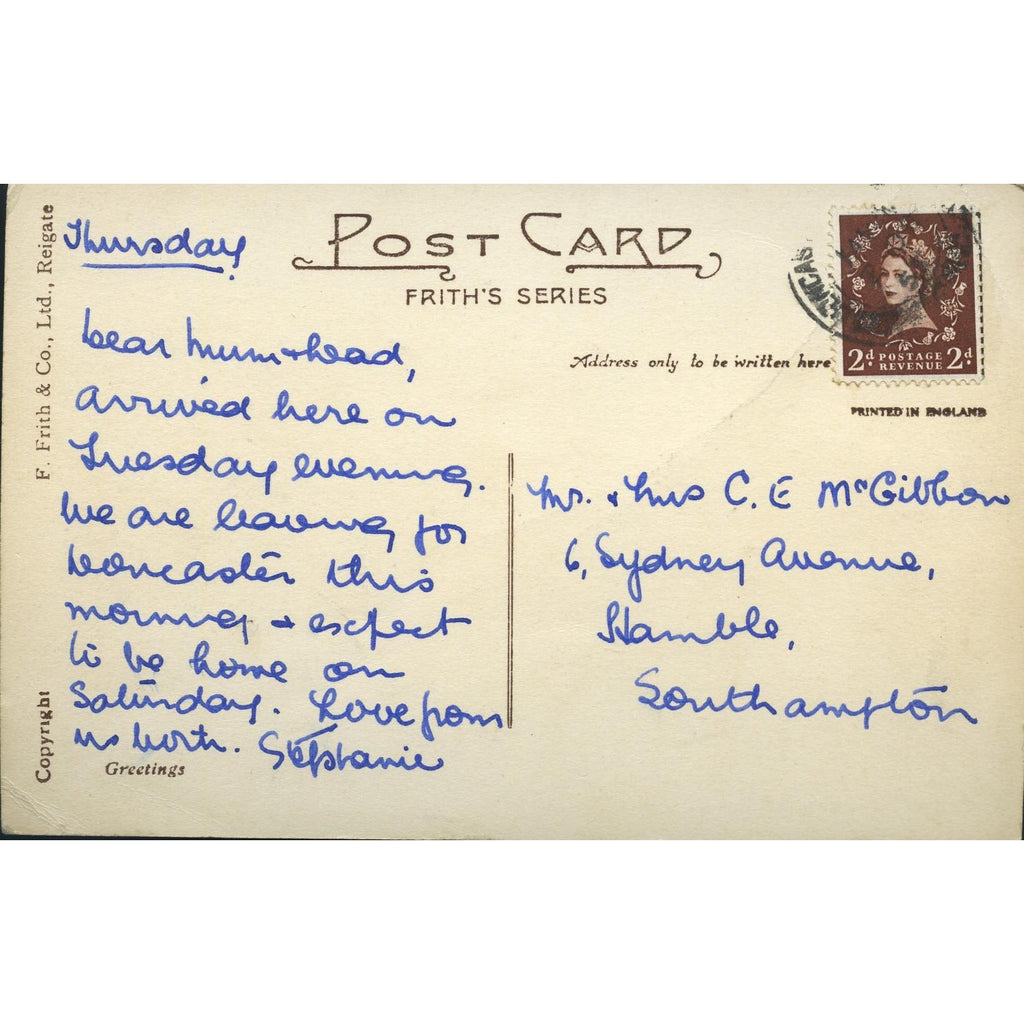 Thursday
POST CARD
FRITH'S SERIES
Address only to be written here
2d POSTAGE 2d
REVENUE
PRINTED IN ENGLAND
F. Frith & Co., Ltd., Reigate
Copyright
Dear Mum & Dad,
Arrived here on
Tuesday evening.
We are leaving for
Doncaster this
morning & expect
to be home on
Saturday. Love from
us both. Stephanie
Greetings
Mr. & Mrs C. E McGibbon
6, Sydney Avenue,
Hamble,
Southampton